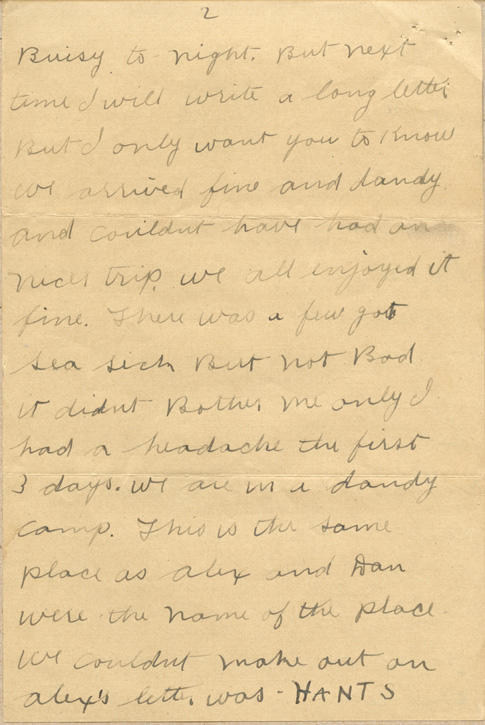 2
Buisy to-night. But next
time I will write a long letter
But I only want you to know
we arrived fine and dandy.
and couldnt have had an
nicer trip. we all enjoyed it
fine. There was a few got
sea sick But not Bad
it didnt Bother me only I
had a headache the first
3 days. we are in a dandy
camp. This is the same
place as alex and Dan
were the name of the place
we couldnt make out on
alex's letter was - HANTS